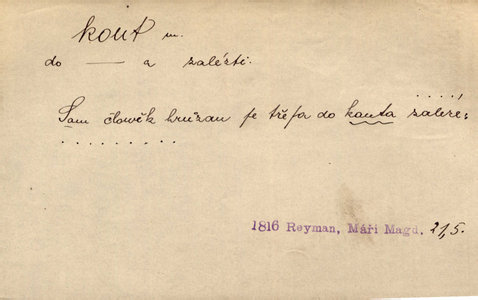 kout m.
do — a zalézti.
. . . . ,
Sam člowěk hruzau se třefa do kauta zaleze;
. . . . . . . . .
1816 Reyman, Máří Magd. 21,5.